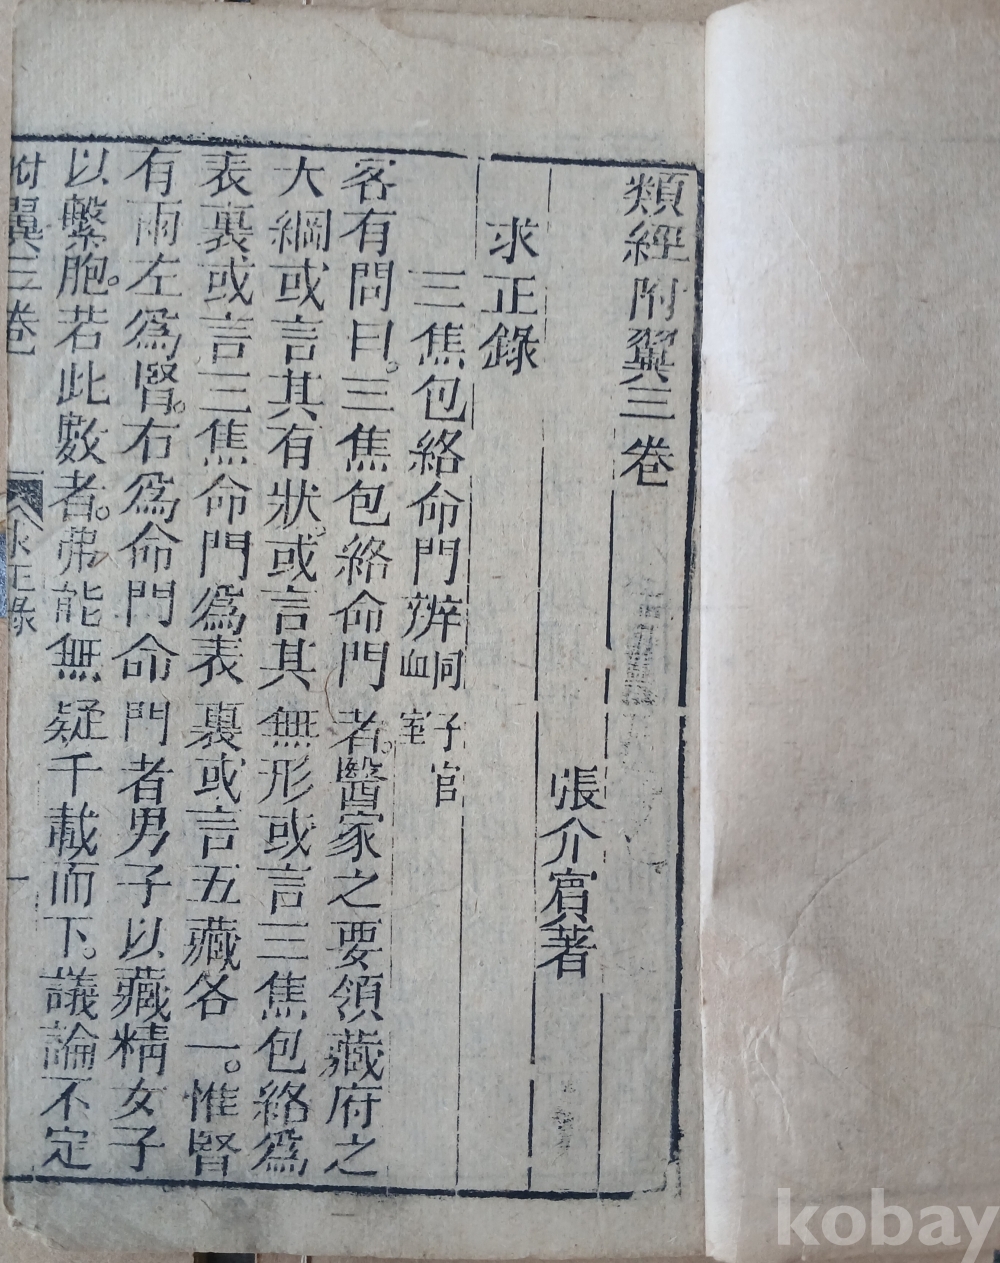 類經附翼三卷
張介賔著
求正錄
三焦包絡命門辨 峒子宮血室
客有問曰。三焦包絡命門者。醫家之要領藏府之
大綱或言其有狀。或言其無形或言三焦包絡爲
表裏或言三焦命門爲表裏或言五藏各一。惟腎
有兩左爲腎。右爲命門命門者男子以藏精女子
以繫胞。若此數者。弗能無疑千載而下。議論不定
附翼三卷 求正錄 一
kobay